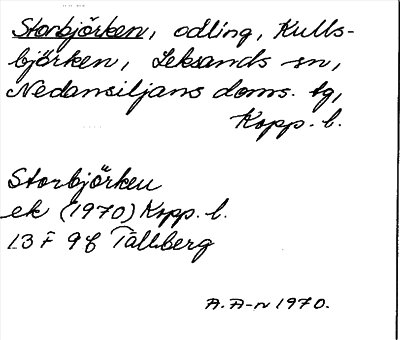 Storbjörken, odling, Kulls-
björken, Leksands sn,
Nedansiljans doms. tg,
Kopp. l.
Storbjörken
ek (1970) Kopp. l.
13 F 9f Tällberg
A. A-n 1970.